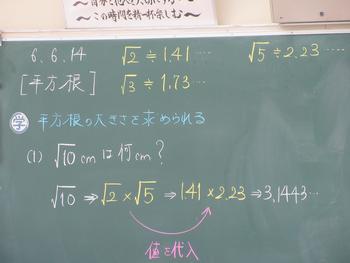 〜この時間を精一杯楽しむ〜
6.6.14 √2≒1.41…. √5≒2.23……
[平方根] √3≒1.73….
学 平方根の大きさを求められる
(1) √10cmは何cm?
√10 ⇒ √2×√5 ⇒ 1.41×2.23 ⇒ 3.1443…
値を代入